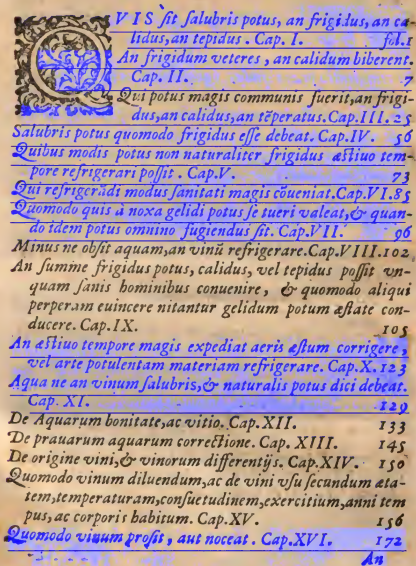 QVIS sit salubris potus, an frigidus, an ca-
lidus, an tepidus. Cap. I. fol.1
An frigidum veteres, an calidum biberent.
Cap. II. 7
Qui potus magis communis fuerit, an frigi-
dus, an calidus, an tẽperatus. Cap. III. 25
Salubris potus quomodo frigidus esse debeat. Cap. IV. 56
Quibus modis potus non naturaliter frigidus æstiuo tem-
pore refrigerari possit. Cap. V. 73
Qui refrigerãdi modus sanitati magis cõueniat. Cap. VI. 85
Quomodo quis à noxa gelidi potus se tueri valeat, & quan-
do idem potus omnino fugiendus sit. Cap. VII. 96
Minus ne obsit aquam, an vinũ refrigerare. Cap. VIII. 102
An summe frigidus potus, calidus, vel tepidus possit vn-
quam sanis hominibus conuenire, & quomodo aliqui
perperam euincere nitantur gelidum potum æstate con-
ducere. Cap. IX. 105
An æstiuo tempore magis expediat aeris æstum corrigere,
vel arte potulentam materiam refrigerare. Cap. X. 123
Aqua ne an vinum salubris, & naturalis potus dici debeat.
Cap. XI. 129
De Aquarum bonitate, ac vitio. Cap. XII. 133
De prauarum aquarum correctione. Cap. XIII. 145
De origine vini, & vinorum differentijs. Cap. XIV. 150
Quomodo vinum diluendum, ac de vini vsu secundum æta-
tem, temperaturam, consuetudinem, exercitium, anni tem
pus, ac corporis habitum. Cap. XV. 156
Quomodo vinum prosit, aut noceat. Cap. XVI. 172
An